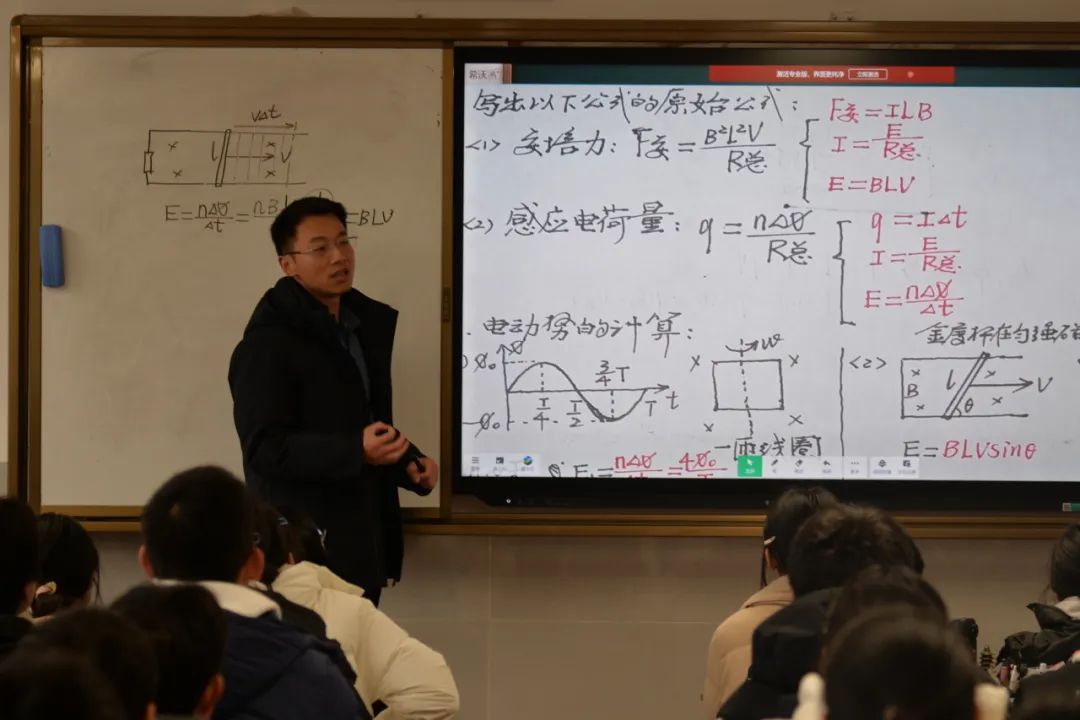 vΔt
l
v
E=nΔΦ/Δt=nB
=BLV
希沃
激活专业版，界面更纯净 立即激活
写出以下公式的原始公式：
<1> 安培力：F安=B²L²V/R总
F安=ILB
I=E/R总
E=BLV
<2> 感应电荷量：q=nΔΦ/R总
q=IΔt
I=E/R总
E=nΔΦ/Δt
电动势的计算：
Φ
Φ₀
-Φ₀
T/4
T/2
3/4T
T
t
w
一匝线圈
E₁=nΔΦ/Δt=4Φ₀/T
金属杆在匀强磁
<2>
B
l
θ
V
E=BLVsinθ